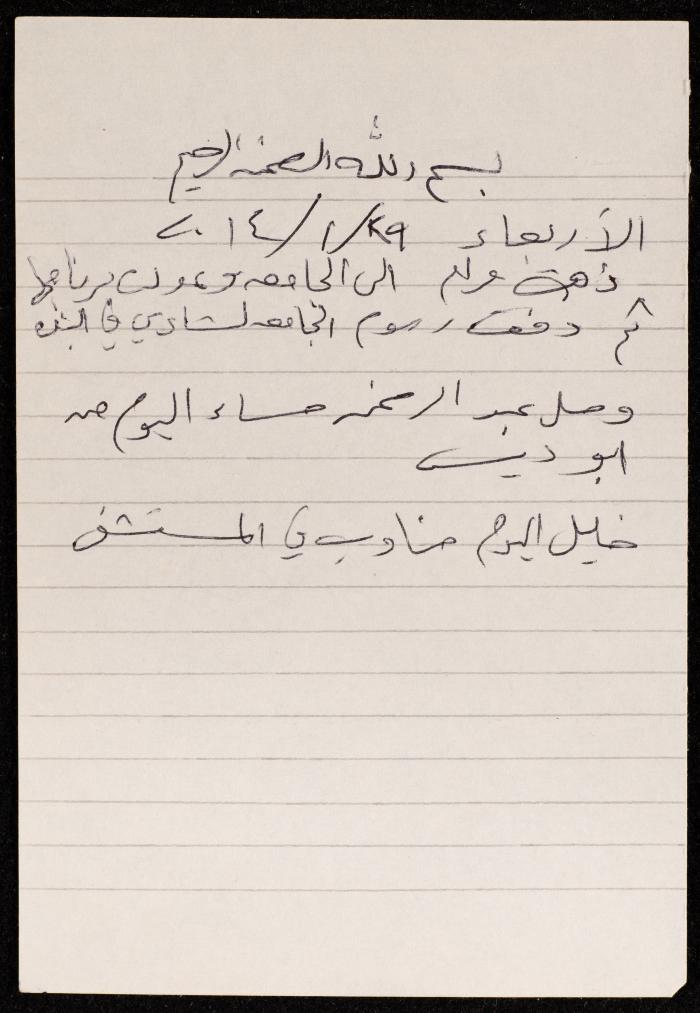 بسم الله الرحمن الرحيم
الأربعاء ٢٩/١/٢٠١٤
ذهبت مرام الى الجامعه برنامجها
ثم دفعت رسوم الجامعه لشادي في البنك
وصل عبد الرحمن مساء اليوم من
ابو ديس
خليل اليوم مناوب في المستشفى